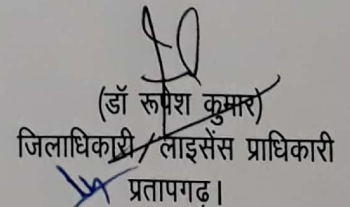 (डॉ रूपेश कुमार)
जिलाधिकारी / लाइसेंस प्राधिकारी
प्रतापगढ़।